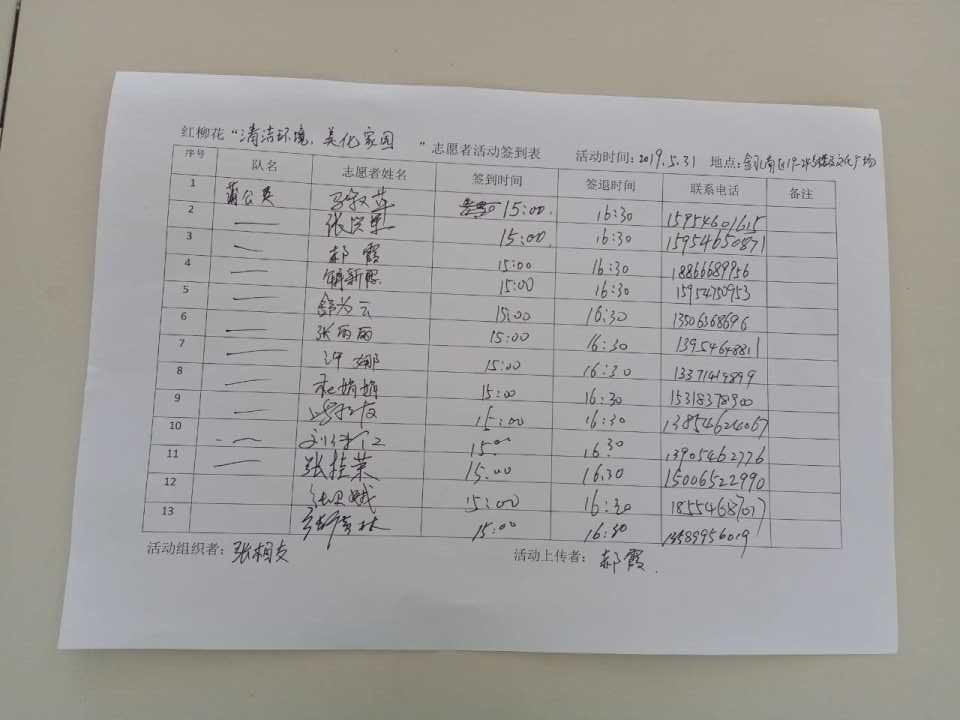 红柳花“清洁环境，美化家园”志愿者活动签到表 活动时间：2019.5.31 地点：
序号 队名 志愿者姓名 签到时间 签退时间 联系电话 备注
1 蒲公英 15:00 16:30 15954601615
2 — 15:00 16:30 15954650871
3 — 郝霞 15:00 16:30 18866689956
4 — 15:00 16:30 15954750953
5 — 15:00 16:30 13506368696
6 — 张丽丽 15:00 16:30 13954648811
7 — 许娜 15:00 16:30 13371419899
8 — 杜娟娟 15:00 16:30 15318378900
9 — 15:00 16:30 13854624067
10 — 15:00 16:30 13905462776
11 — 张桂荣 15:00 16:30 15006522990
12 15:00 16:30
13 15:00 16:30 13589956019
活动组织者： 活动上传者：郝霞